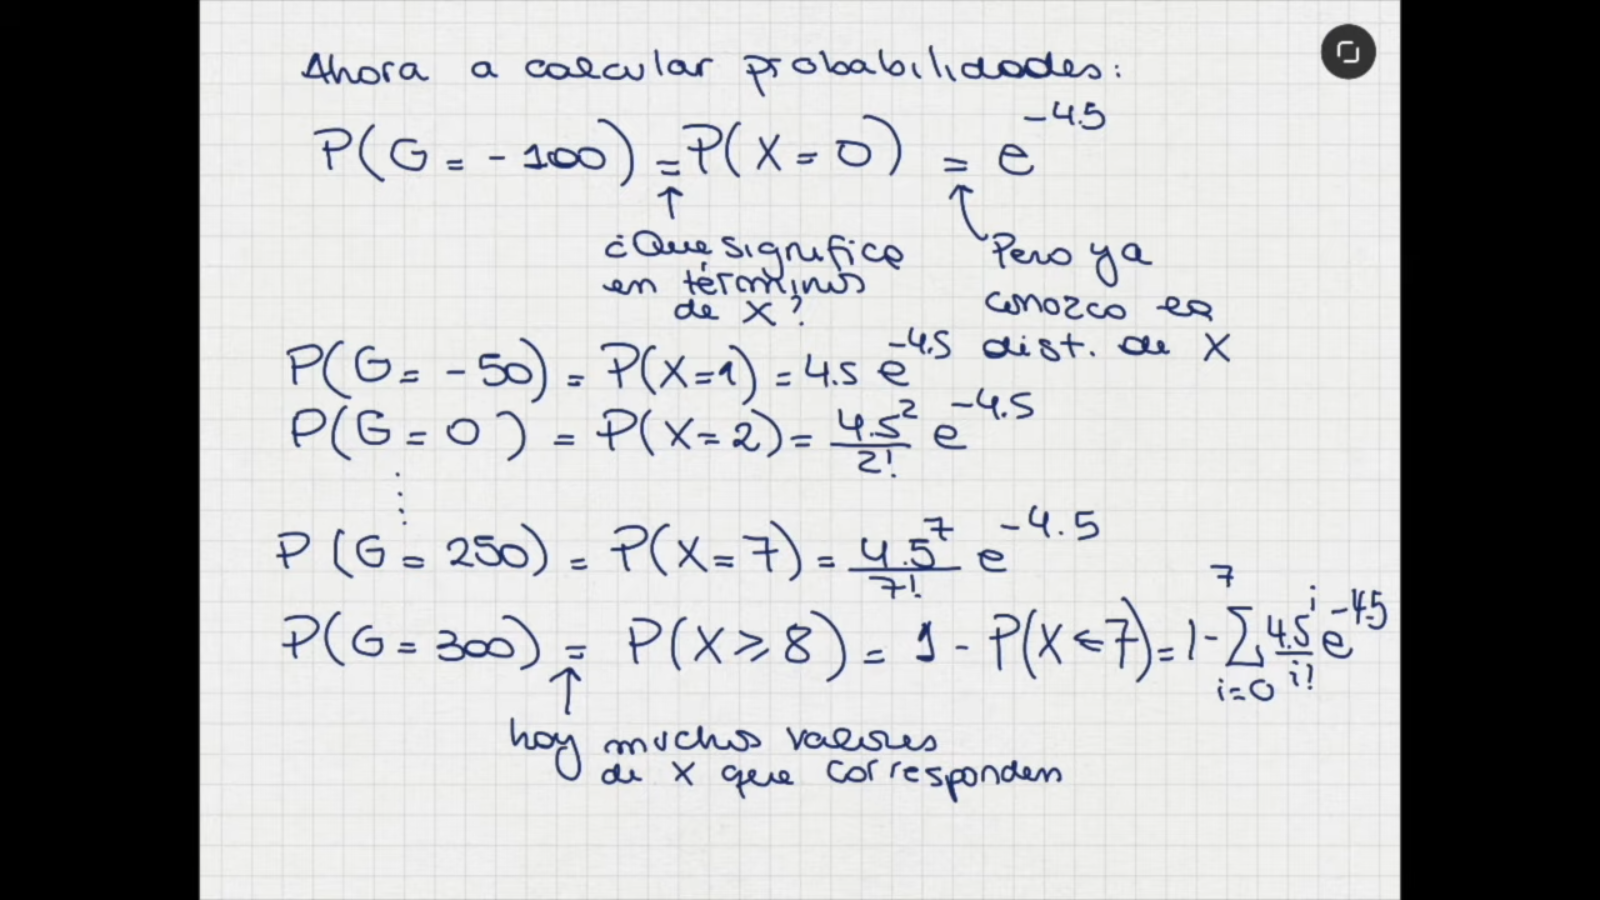 Ahora a calcular probabilidades:
P(G = -100) = P(X = 0) = e^{-4.5}
¿Que significa
en términos
de X?
Pero ya
conozco la
dist. de X
P(G = -50) = P(X=1) = 4.5 e^{-4.5}
P(G = 0) = P(X=2) = \frac{4.5^2}{2!} e^{-4.5}
⋮
P(G = 250) = P(X=7) = \frac{4.5^7}{7!} e^{-4.5}
P(G = 300) = P(X ≥ 8) = 1 - P(X ≤ 7) = 1 - \sum_{i=0}^{7} \frac{4.5^i}{i!} e^{-4.5}
hay muchos valores
de X que corresponden